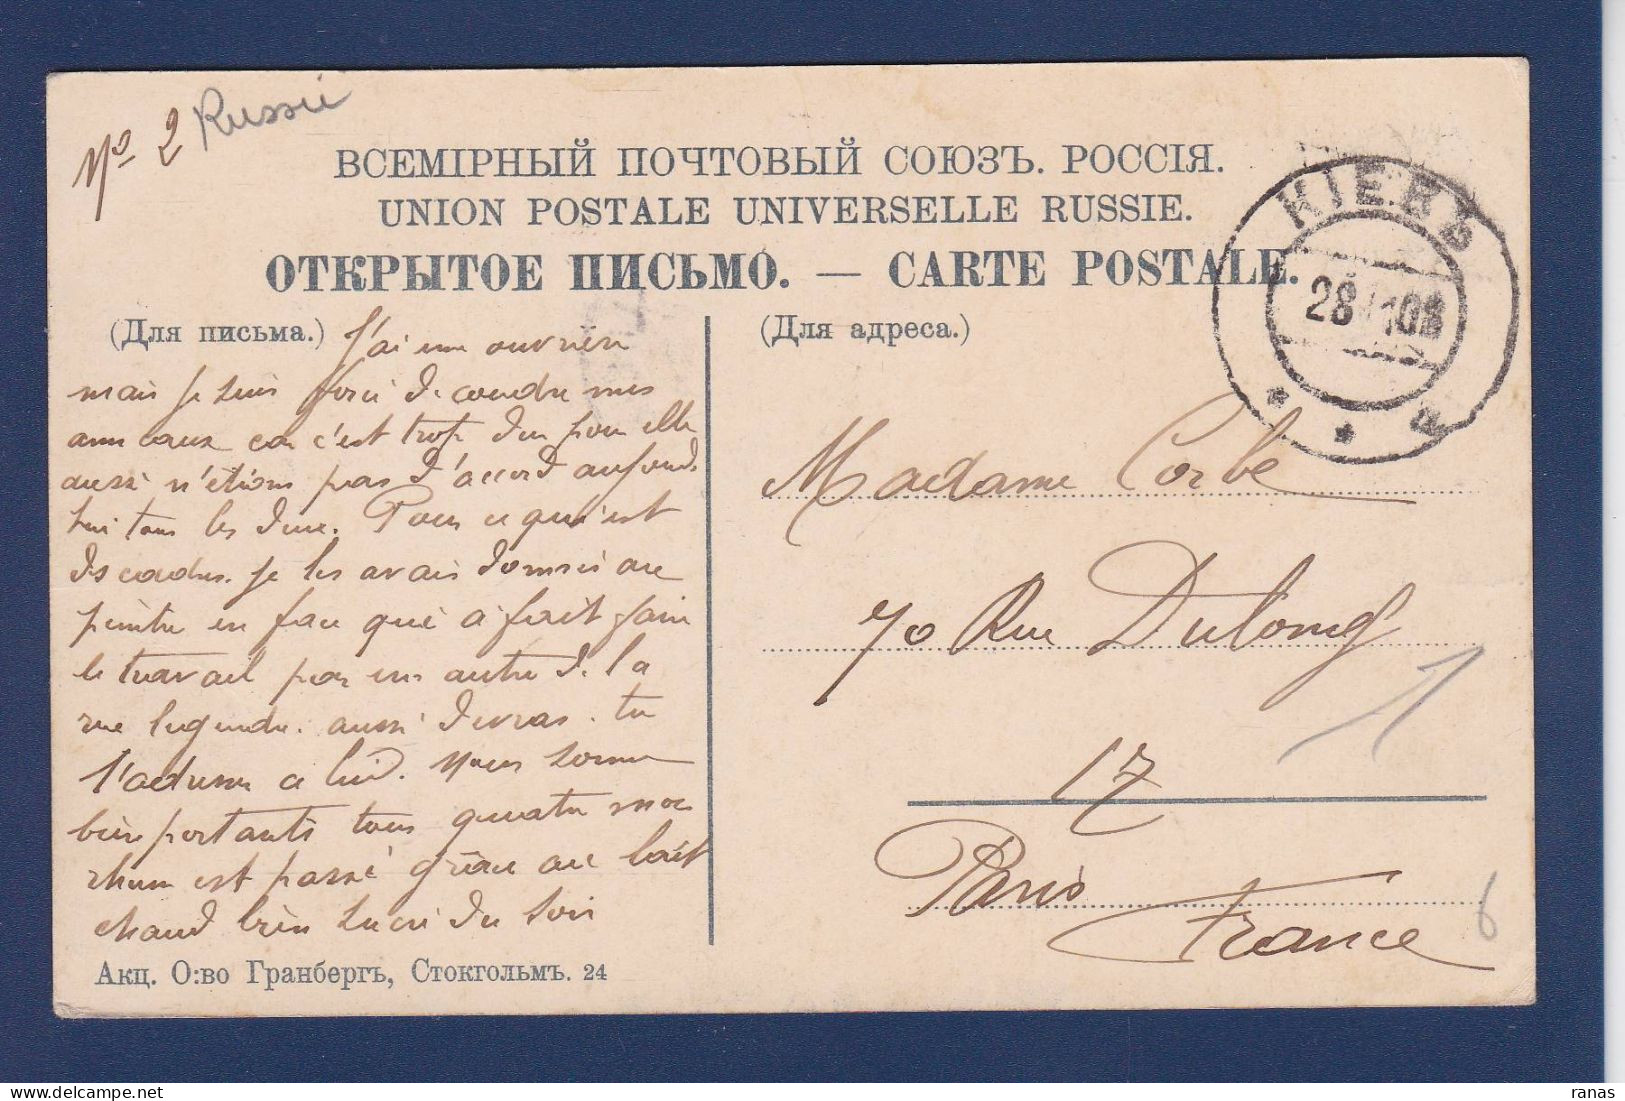 No 2 Russie
ВСЕМІРНЫЙ ПОЧТОВЫЙ СОЮЗЪ. РОССІЯ.
UNION POSTALE UNIVERSELLE RUSSIE.
ОТКРЫТОЕ ПИСЬМО. — CARTE POSTALE.
КІЕВЪ
28
(Для письма.)
J'ai une ouvrière
mais je suis forcé de coudre mes
anneaux car c'est trop dur pour elle
aussi n'étions pas d'accord aujourd
hui tous les deux. Pour ce qui est
des cadres je les avais donnés au
peintre en face qui a fait faire
le travail par un autre de la
rue Legendre. aussi
l'adresse a lui. Nous sommes
bien portants tous quatre mon
rhume est passé grâce au lait
chaud bien sucré du soir
Акц. О:во Гранбергъ, Стокгольмъ. 24
(Для адреса.)
Madame Corbe
70 Rue Dulong
17
Paris
France
1
6
ranas